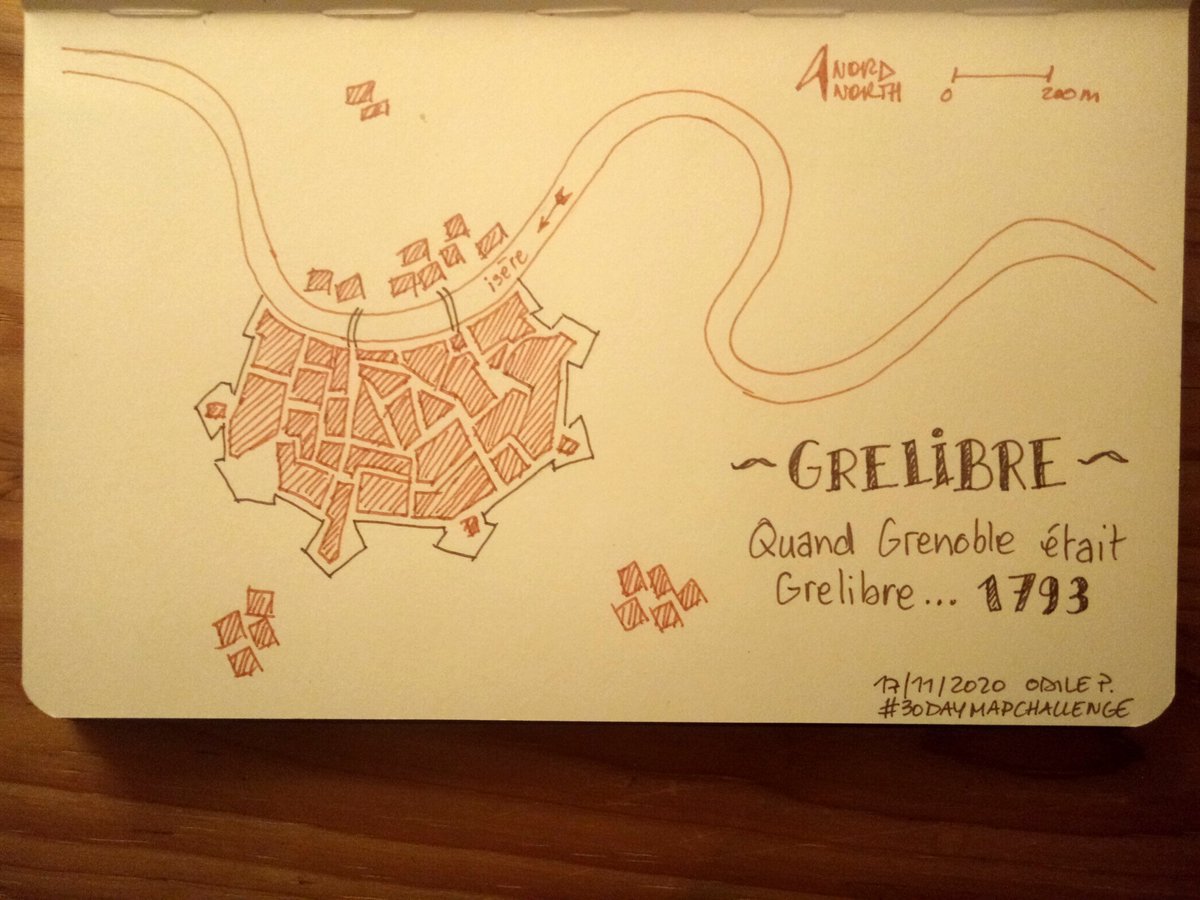 NORD
NORTH
0 200m
isère
~ GRELiBRE ~
Quand Grenoble était
Grelibre... 1793
17/11/2020 ODILE P.
#30DAYMAPCHALLENGE